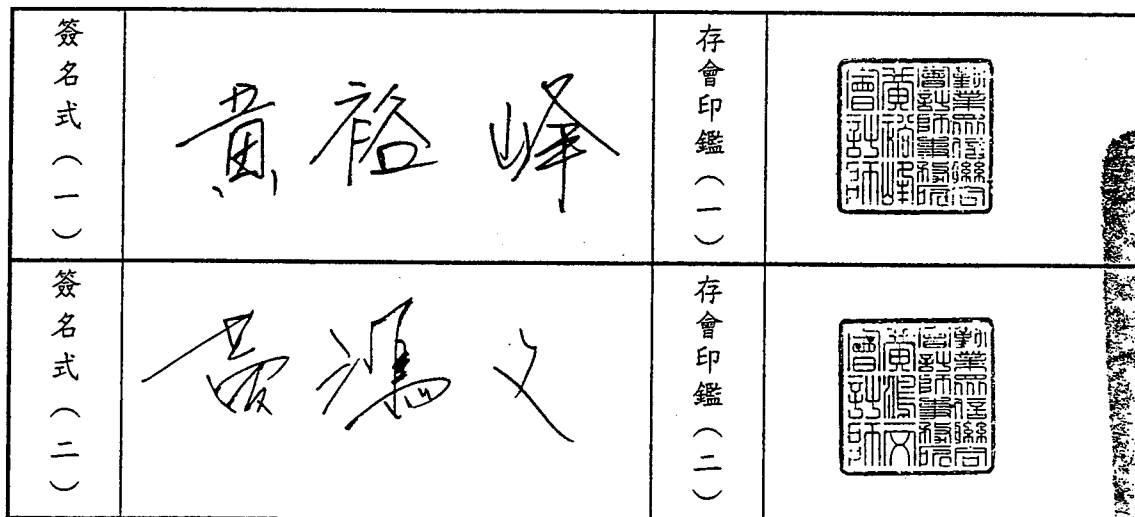 簽名式（一）
黃裕峰
存會印鑑（一）
勤業眾信聯合
會計師事務所
黃裕峰
會計師
簽名式（二）
黃鴻文
存會印鑑（二）
勤業眾信聯合
會計師事務所
黃鴻文
會計師